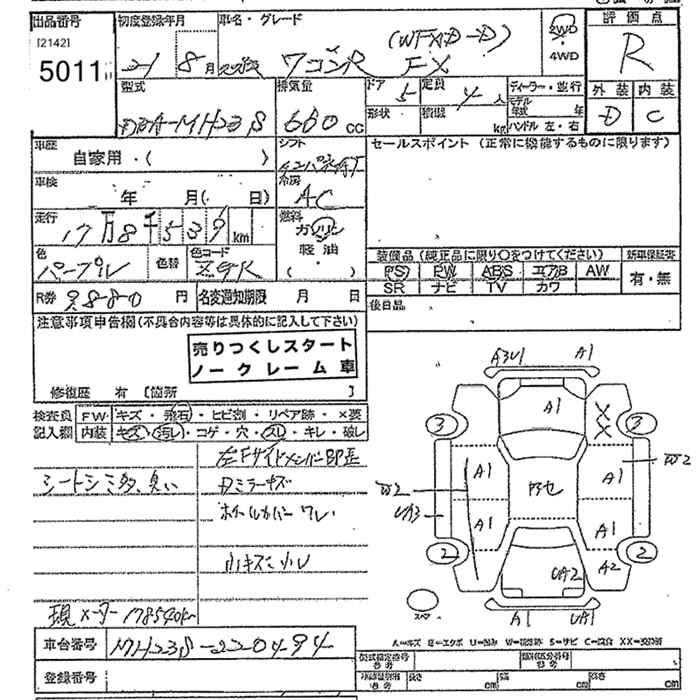 出品番号 初度登録年月 車名・グレード 評価点
[2142] (WFXD-D) 2WD
5011 21 8月 スズキ ワゴンR FX ・4WD R
型式 排気量 ドア 定員 ディーラー・並行 外装 内装
DBA-MH23S 660cc 5 4人 モデル年式 年 D C
形状 積載 kg ハンドル 左・右
車歴 シフト セールスポイント (正常に機能するものに限ります)
自家用・( )
車検 冷房
年 月( 日) AC
走行 燃料
17万8千539km ガソリン
軽油
色 色替 色コード ・ ( )
パープル ZGR 装備品(純正品に限り○をつけてください) 新車保証書
PS PW ABS エアB AW 有・無
SR ナビ TV カワ
R券 9880円 名変通知期限 月 日 後日品
注意事項申告欄(不具合内容等は具体的に記入して下さい)
売りつくしスタート
ノークレーム車
修復歴 有 [箇所 ]
検査員 FW キズ・飛石・ヒビ割・リペア跡・×要
記入欄 内装 キズ・汚れ・コゲ・穴・スレ・キレ・破レ
左Fサイドメンバー
シートシミ多、臭い ドミラーキズ
ホイールカバーワレ
小キズ・凹
現メーター178540k
A3U1 A1
A1 X X
3 3
W2 A1 A1 W2
UA3 A1 A1
2 2
UA2 A2
スペア A1 UA1
A=キズ E=エクボ U=凹み W=補修跡 S=サビ C=腐食 XX=交換済
車台番号 MH23S-220494 型式指定番号 参考 類別区分番号 参考
登録番号 長さ cm 幅 cm 高さ cm